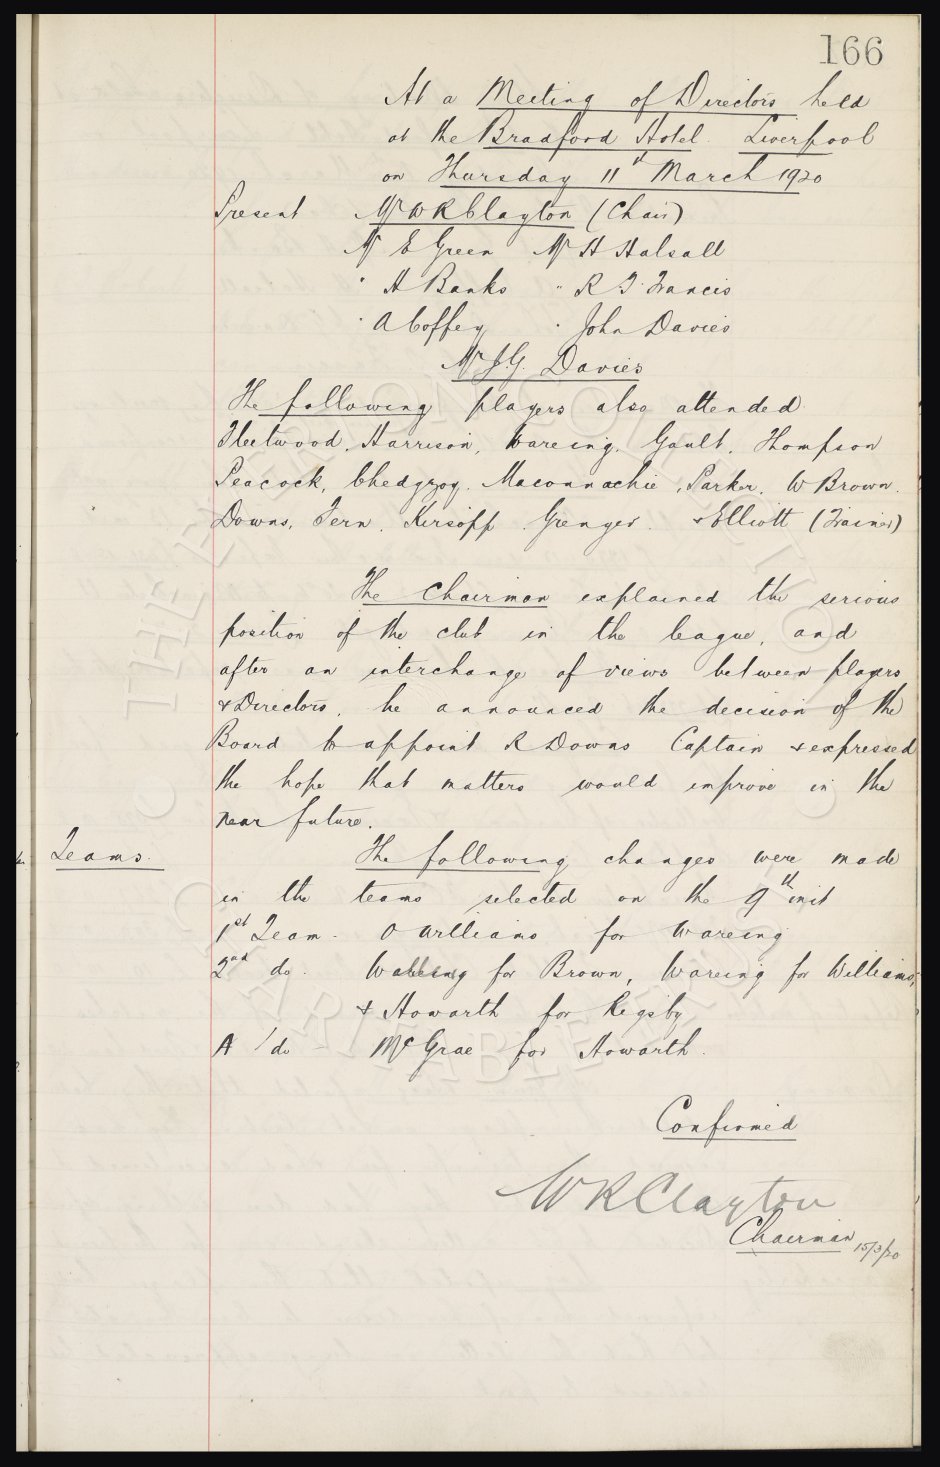 166
At a Meeting of Directors held
at the Bradford Hotel Liverpool
on Thursday 11th March 1920
Present Mr W R Clayton (Chair)
Mr E Green Mr H Halsall
" A Banks " R T Francis
" A Coffey " John Davies
Mr J. G. Davies
The following players also attended
Fleetwood, Harrison, Wareing, Gault, Thompson
Peacock, Chedgzoy, Maconnachie, Parker, W Brown.
Downs, Fern, Kirsopp Grenyer. & Elliott (Trainer)
The Chairman explained the serious
position of the club in the league, and
after an interchange of views between players
& Directors, he announced the decision of the
Board to appoint R Downs Captain & expressed
the hope that matters would improve in the
near future.
Teams. The following changes were made
in the teams selected on the 9th inst
1st Team - O Williams for Wareing
2nd do. for Brown, Wareing for Williams,
& Howarth for Rigsby
A / do - McGrae for Howarth.
Confirmed
W R Clayton
Chairman 15/3/20
THE EVERTON COLLECTION
CHARITABLE TRUST